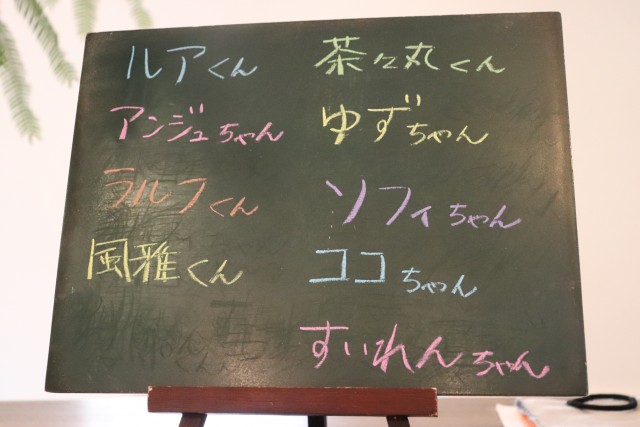 ルアくん
アンジュちゃん
ラルフくん
風雅くん
茶々丸くん
ゆずちゃん
ソフィちゃん
ココちゃん
すいれんちゃん